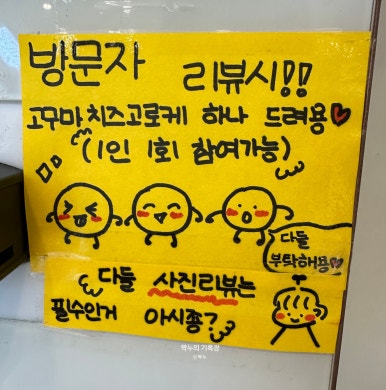 방문자 리뷰시!!
고구마치즈고로케 하나 드려용♥
(1인 1회 참여가능)
다들
부탁해용♥
다들 사진리뷰는
필수인거 아시죵?
먹누의 기록장